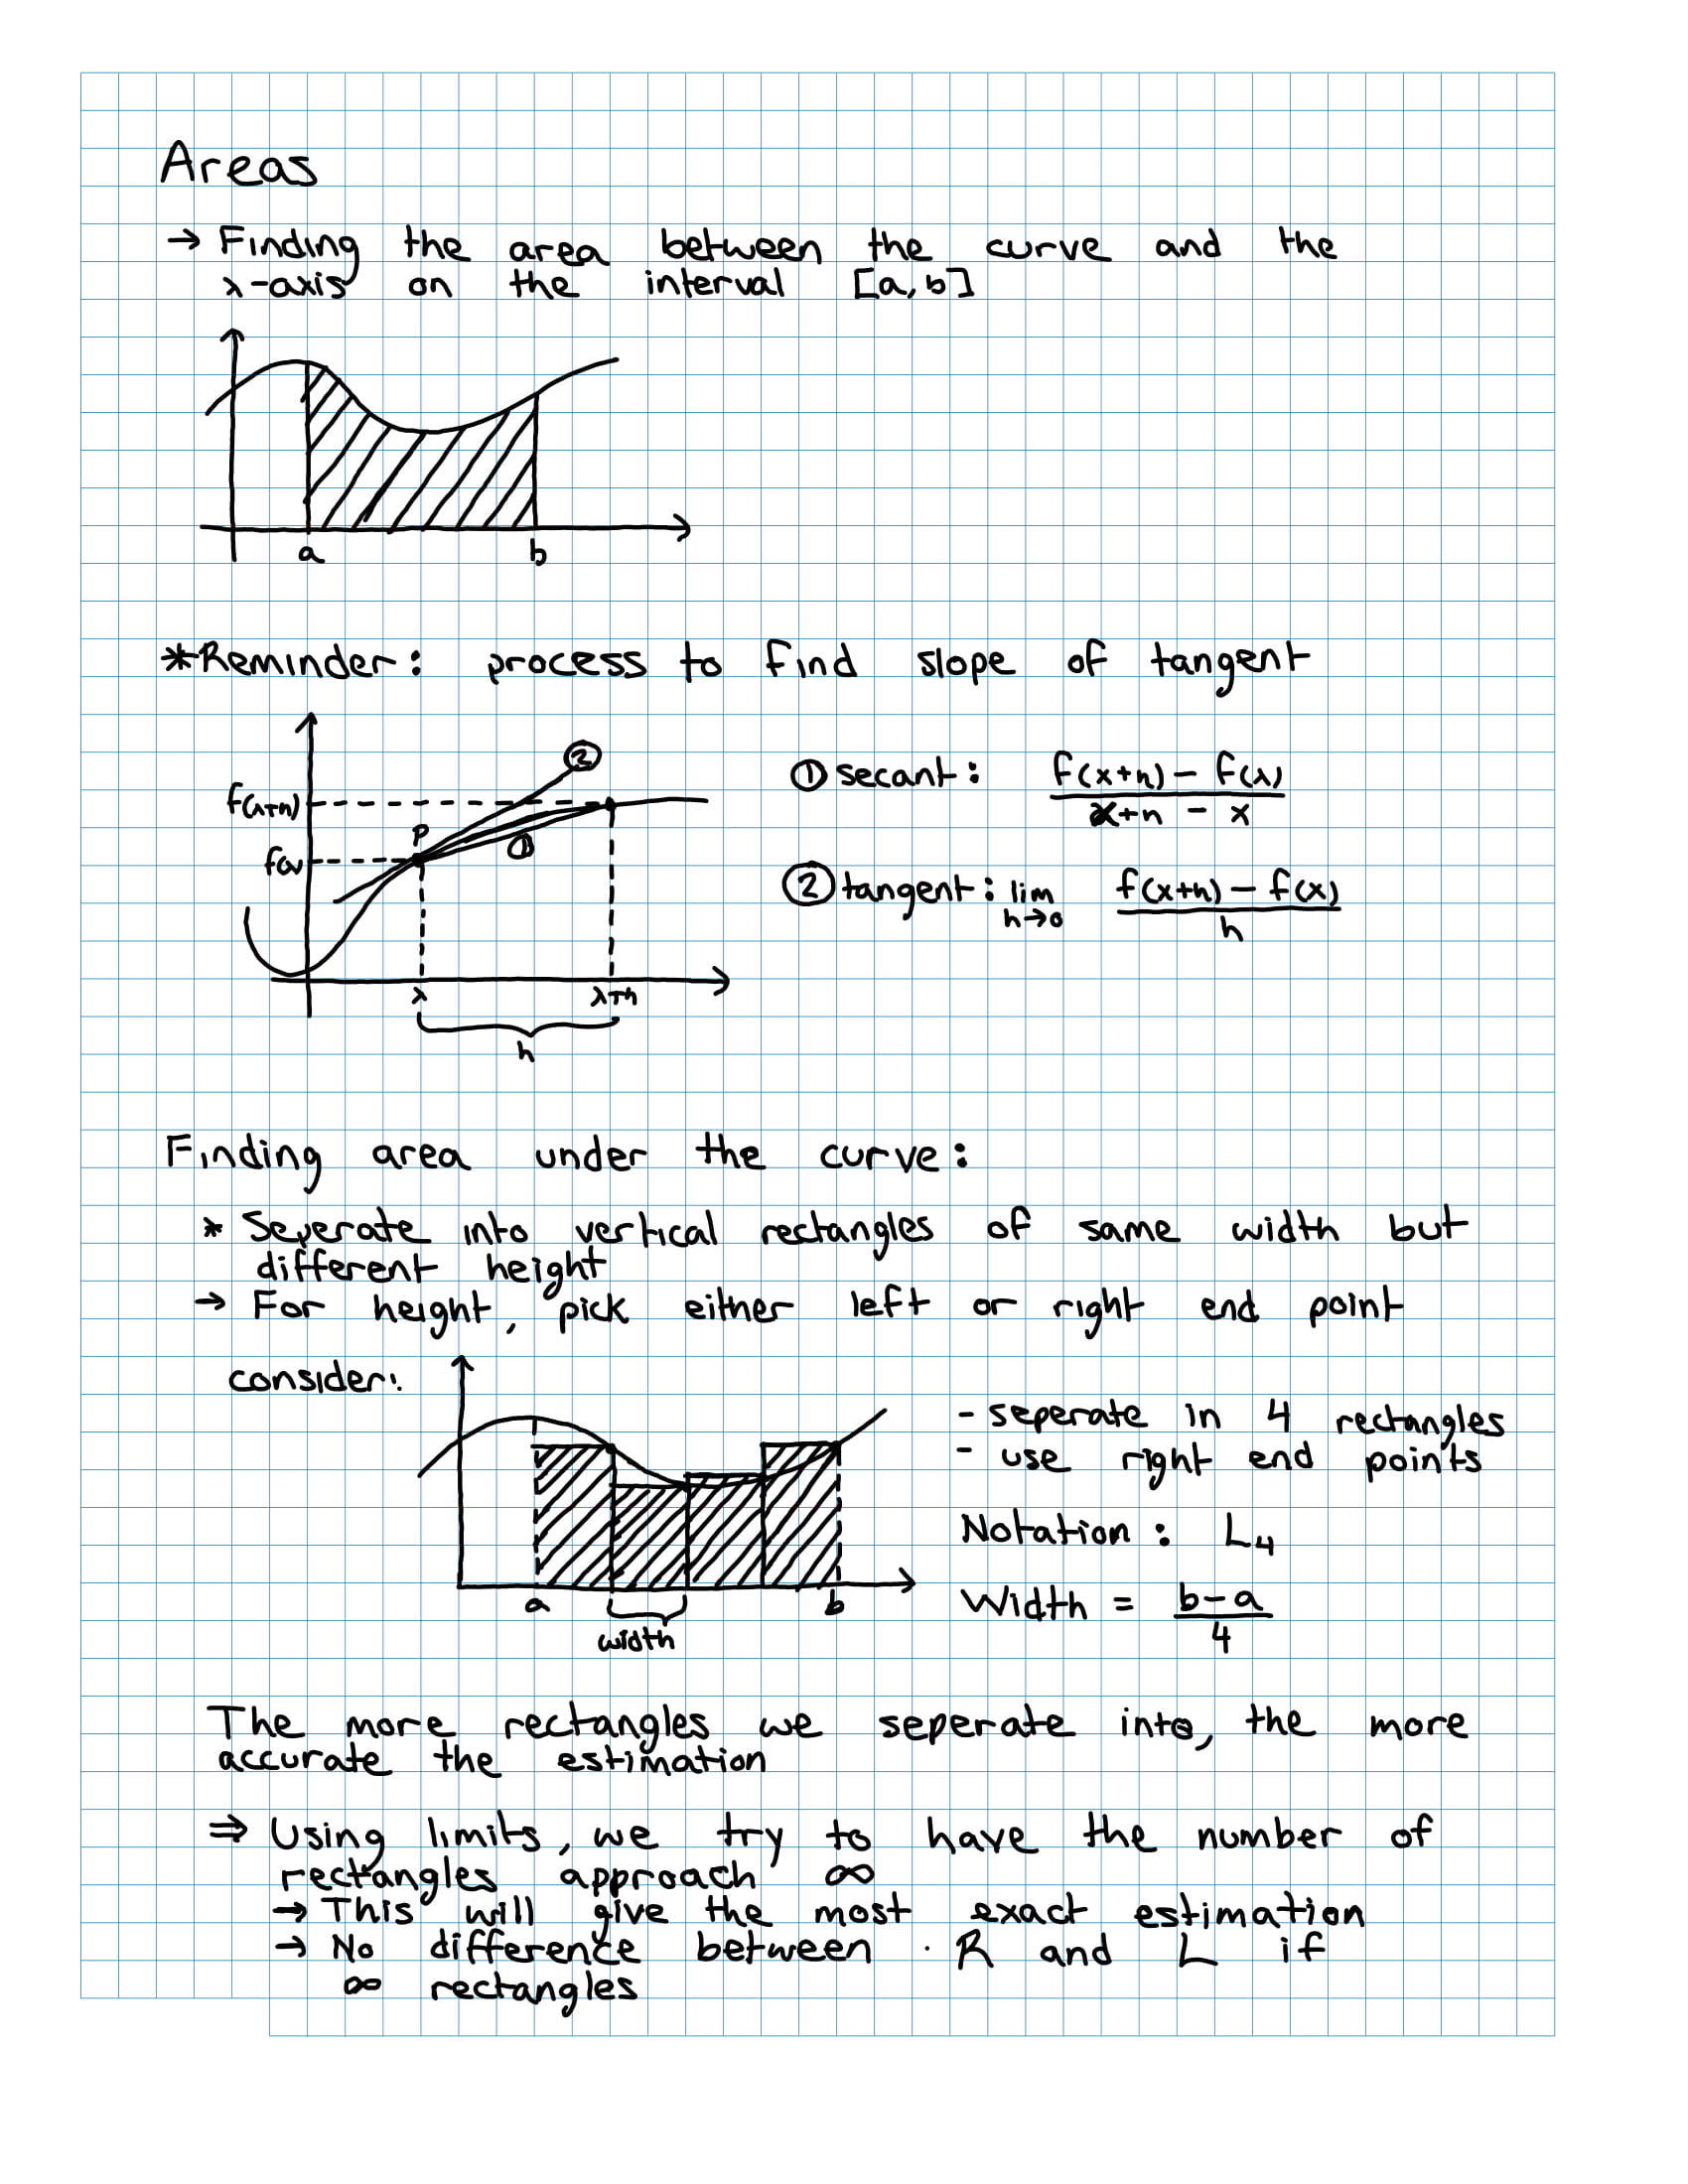 Areas
→ Finding the area between the curve and the
x-axis on the interval [a,b]
a b
*Reminder: process to find slope of tangent
②
f(x+h)
P
①
f(x)
x x+h
h
① secant: f(x+h) - f(x) / x+h - x
② tangent: lim h→0 f(x+h) - f(x) / h
Finding area under the curve:
* Seperate into vertical rectangles of same width but
different height
→ For height, pick either left or right end point
consider:
a b
width
- seperate in 4 rectangles
- use right end points
Notation: L4
Width = b-a / 4
The more rectangles we seperate into, the more
accurate the estimation
⇒ Using limits, we try to have the number of
rectangles approach ∞
→ This will give the most exact estimation
→ No difference between R and L if
∞ rectangles